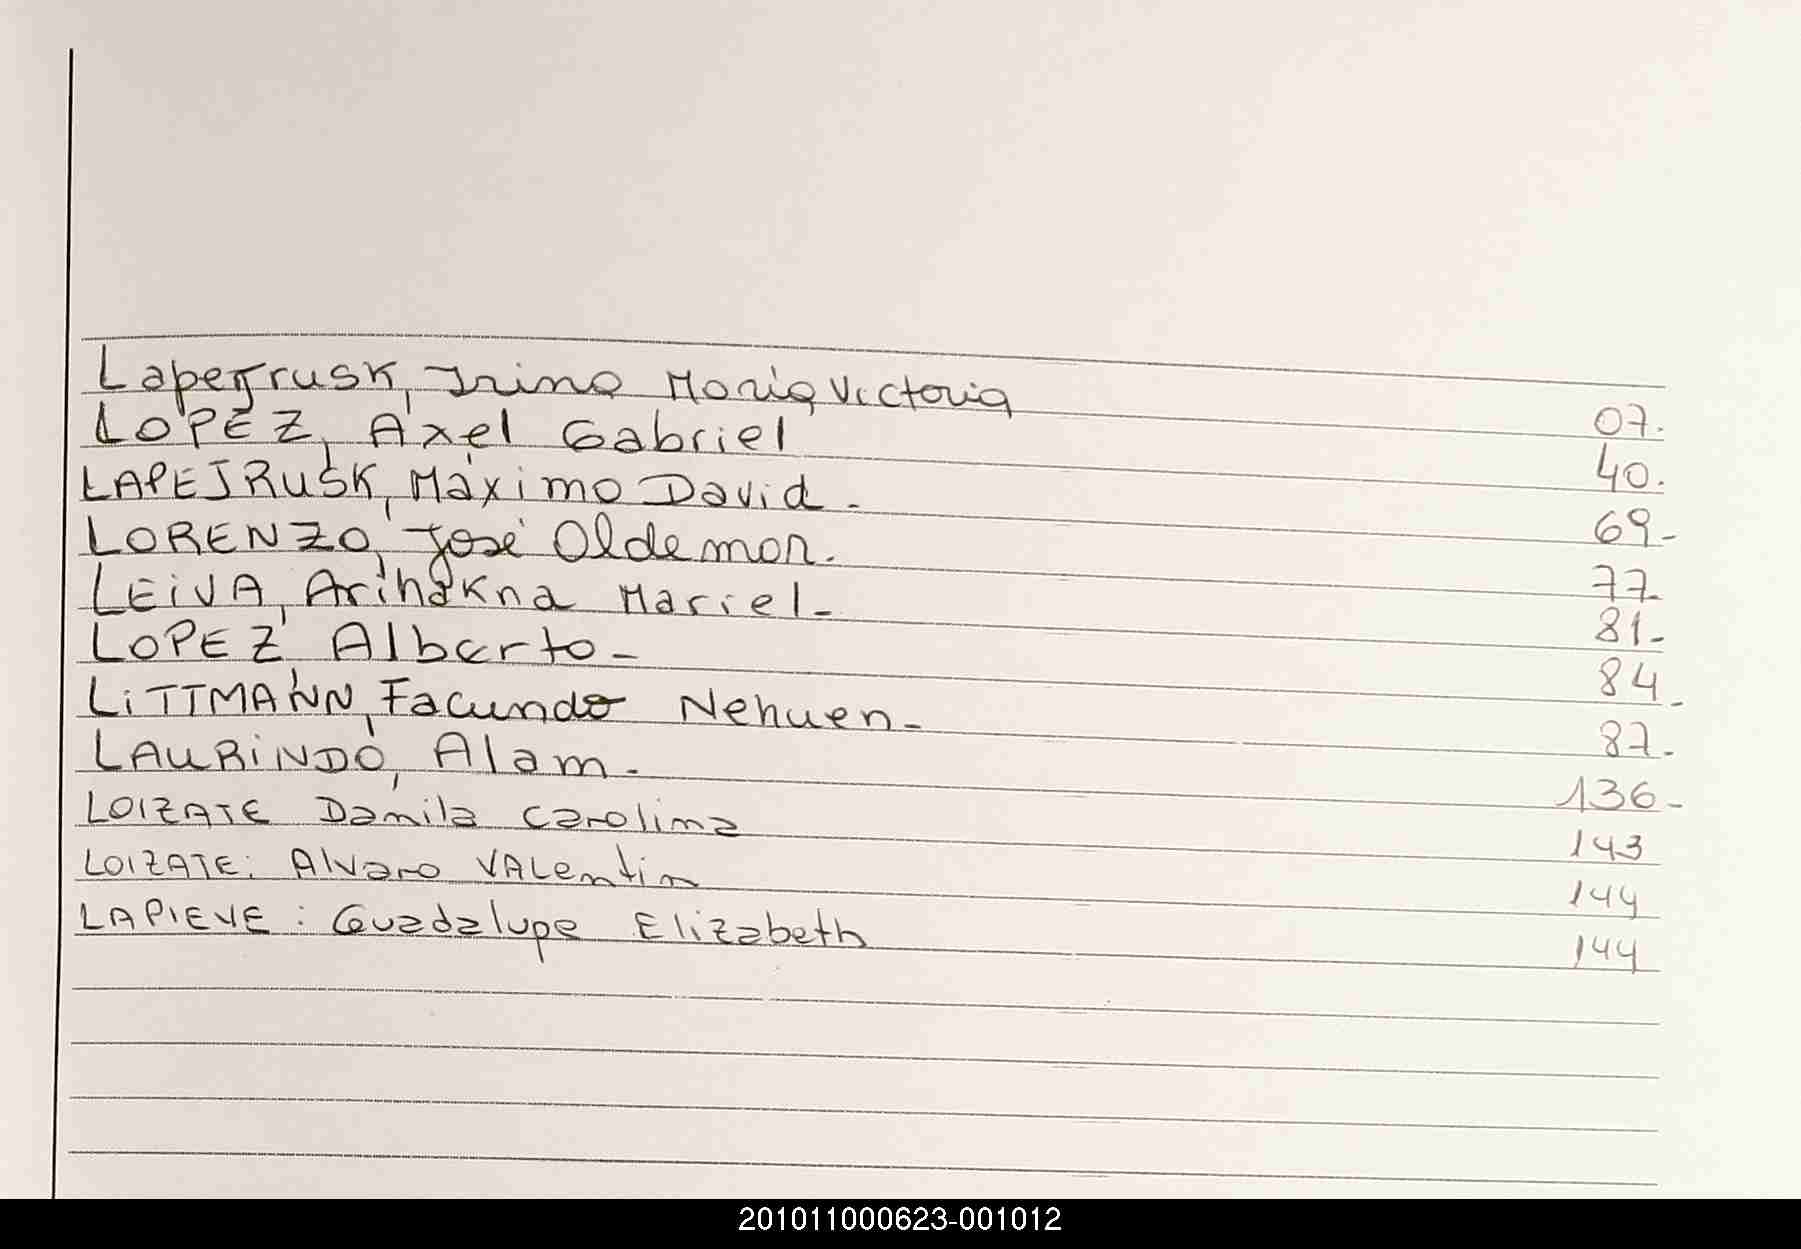 Lapejrusk, Irina María Victoria 07.
LOPEZ, Axel Gabriel 40.
LAPEJRUSK, Máximo David - 69-
LORENZO, José Oldemar. 77-
LEIVA, Arihakna Mariel- 81-
LOPEZ, Alberto- 84-
LITTMANN, Facundo Nehuen- 87-
LAURINDO, Alam- 136-
LOIZATE Damila Carolina 143
LOIZATE: Alvaro VALentin 144
LAPIEVE: Guadalupe Elizabeth 144
201011000623-001012